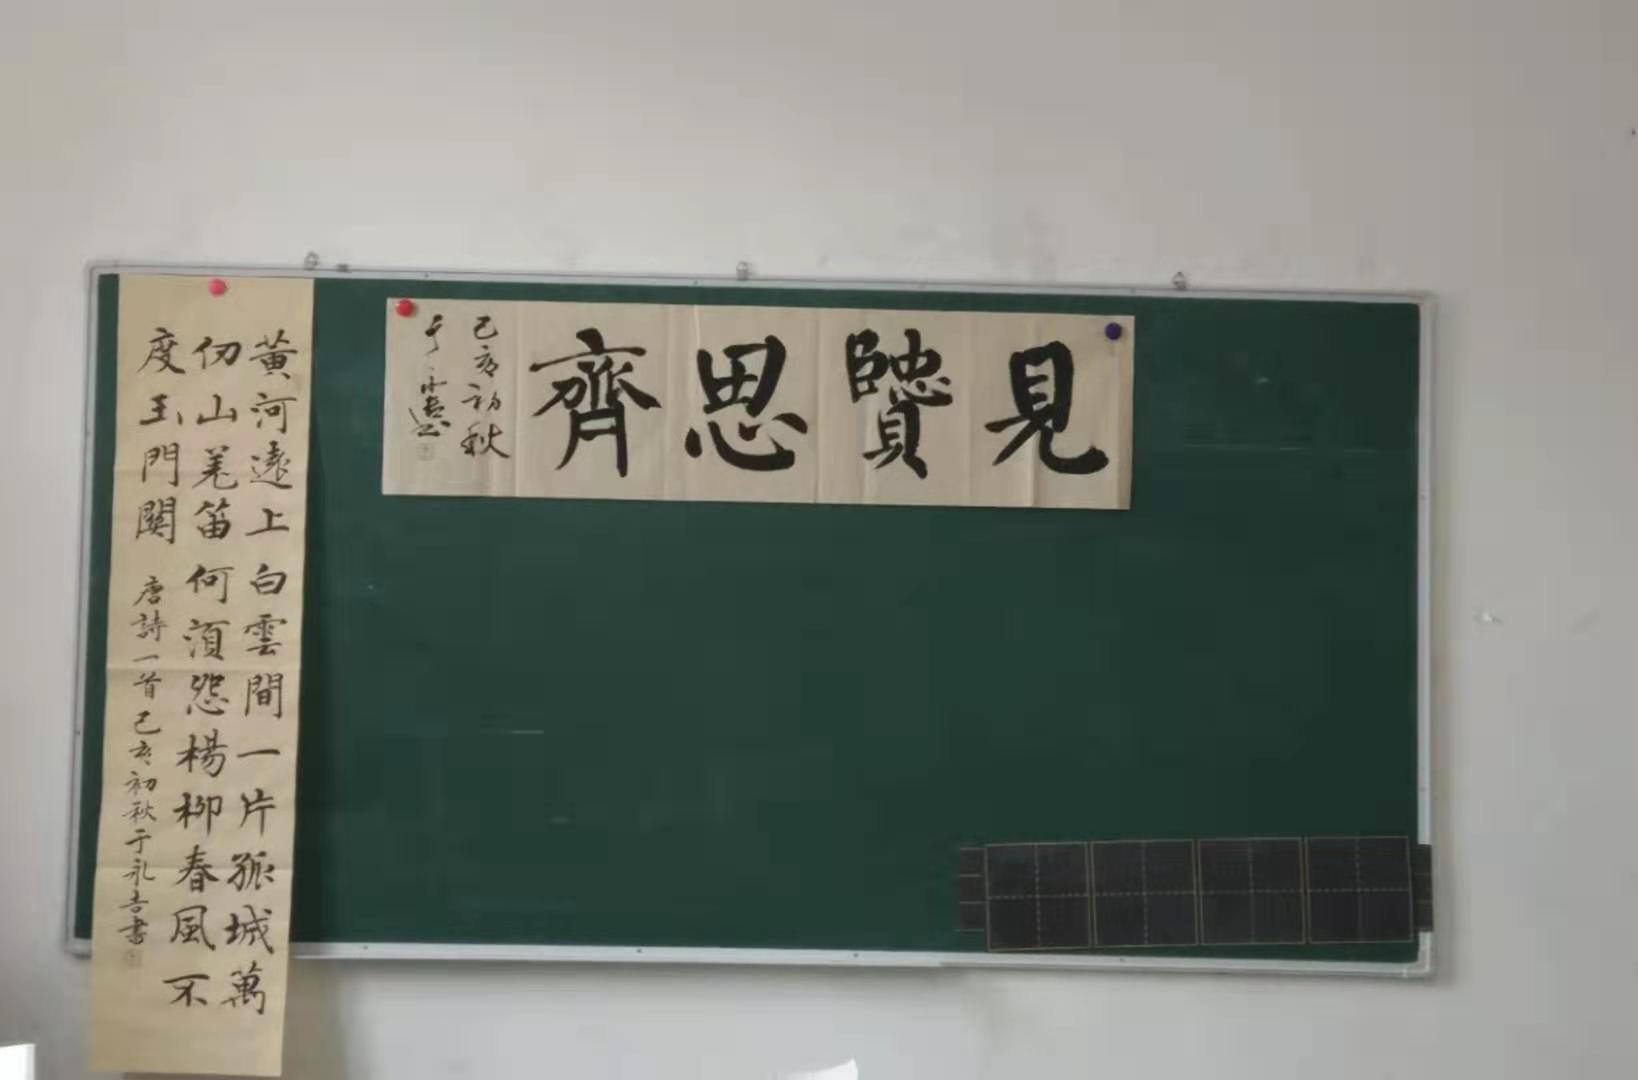 見賢思齊
己亥初秋
黃河遠上白雲間一片孤城萬
仞山羌笛何須怨楊柳春風不
度玉門關 唐詩一首己亥初秋于永吉書